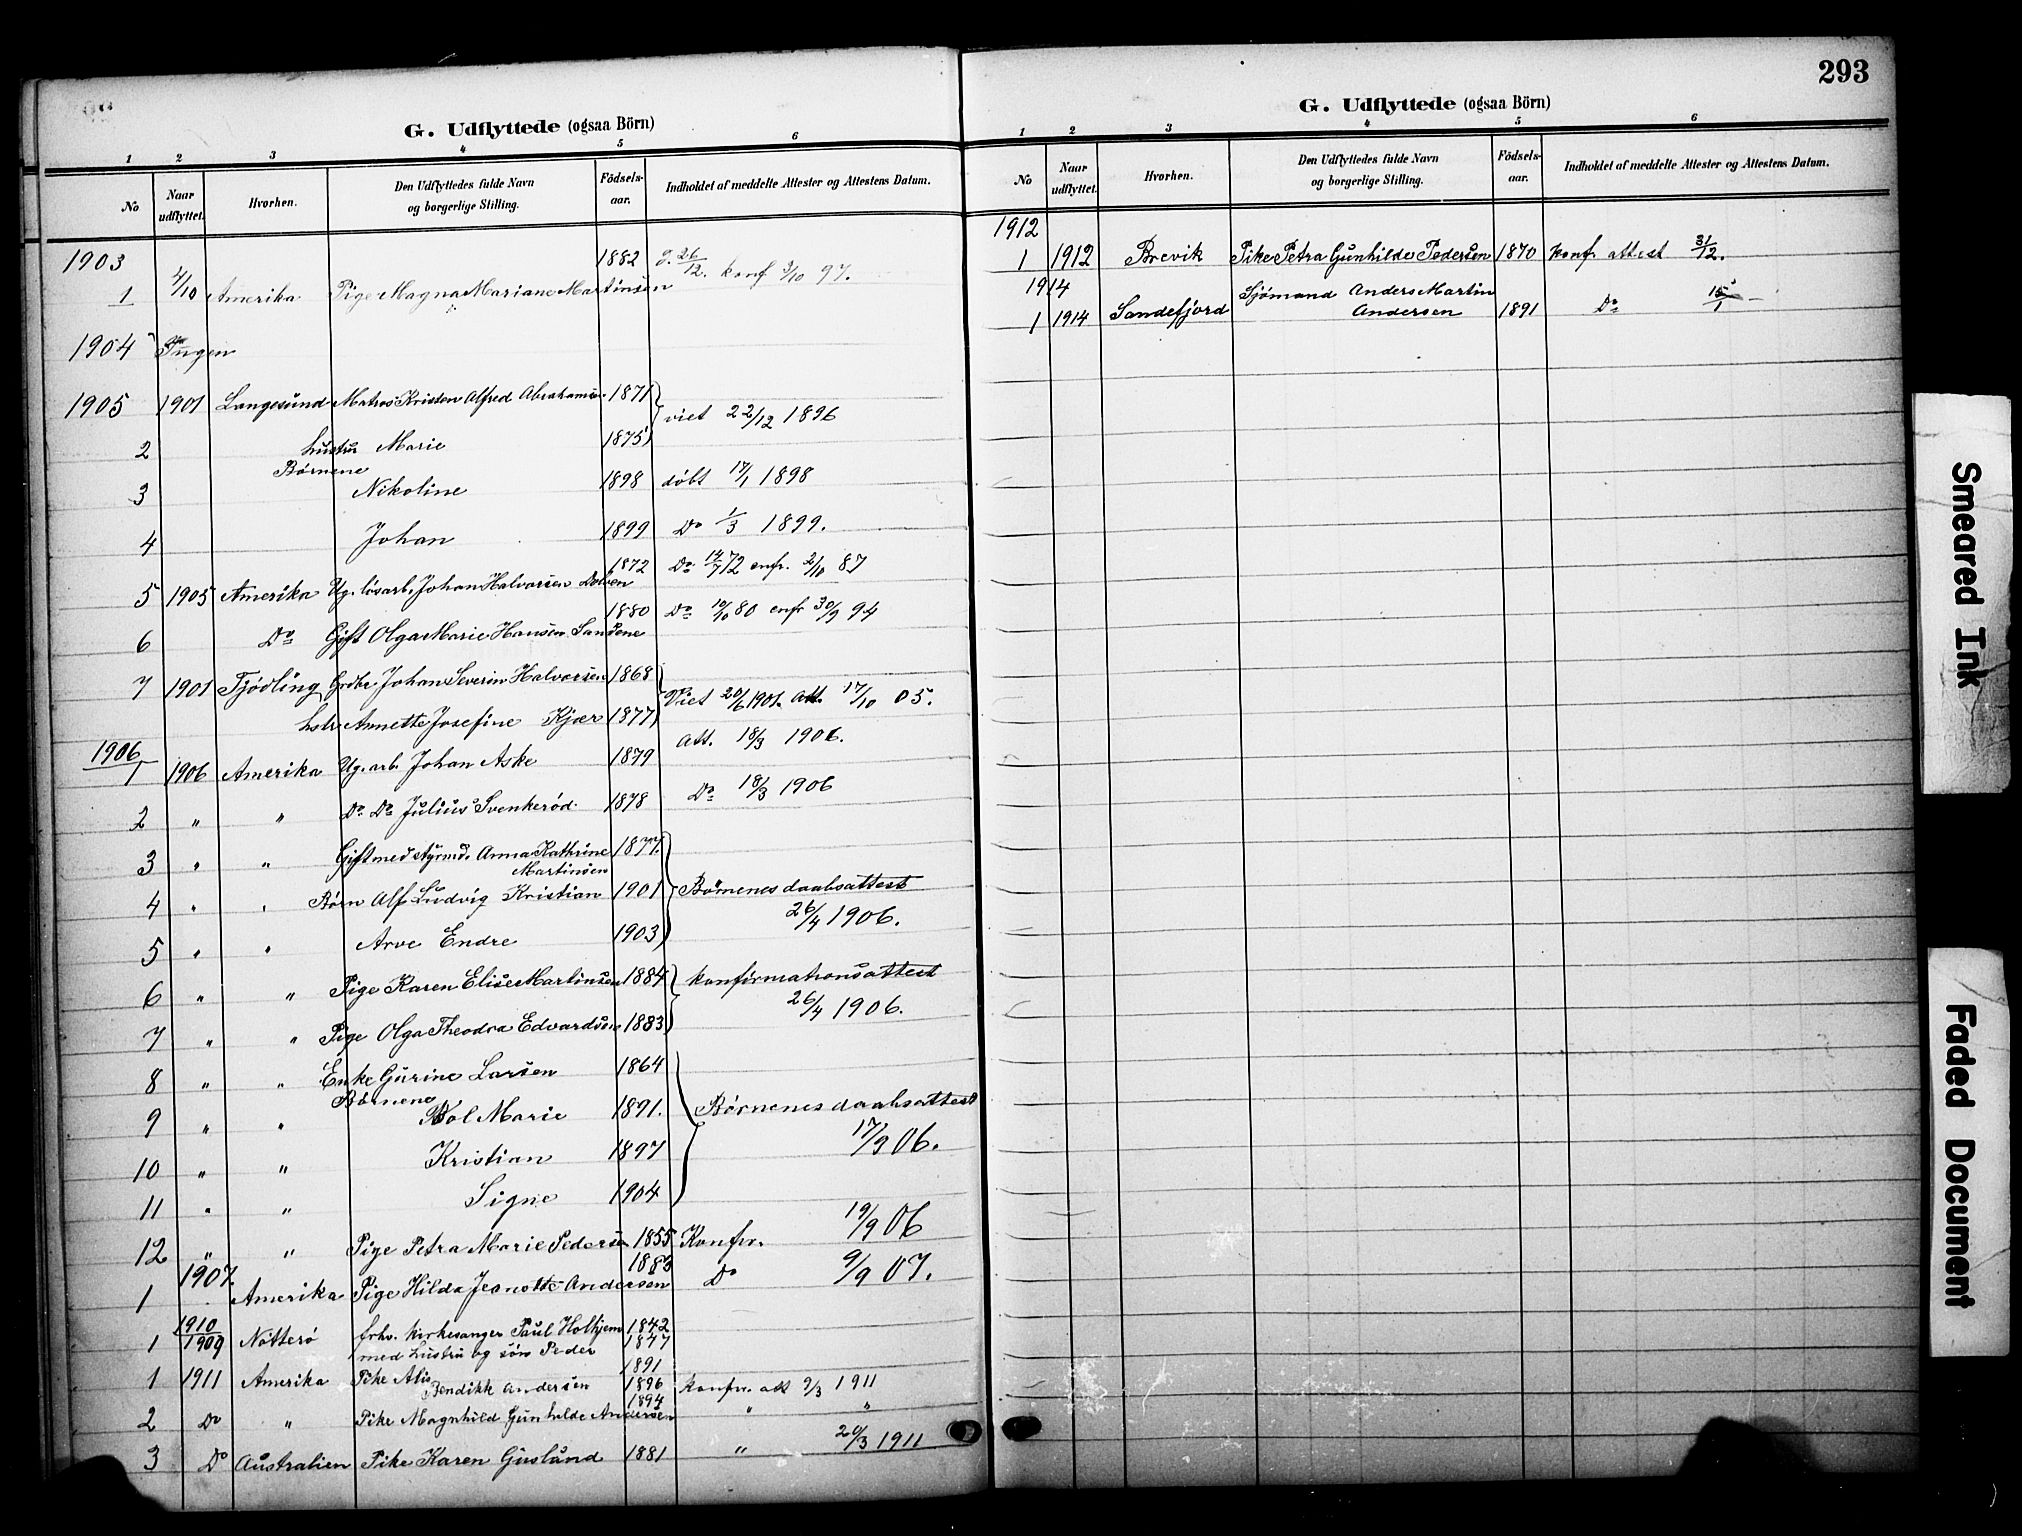 G. Udflyttede (ogsaa Börn)
1 2 3 4 5 6
No Naar udflyttet. Hvorhen. Den Udflyttedes fulde Navn og borgerlige Stilling. Födsels-aar. Indholdet af meddelte Attester og Attestens Datum.
1903
1 4/10 Amerika Pige Magna Mariane Martinsen 1882 26/12. konf 3/10 97.
1904 Ingen
1905 1901 Langesund Matros Kristen Alfred Abrahamsen 1871 } viet 22/12 1896
2 hustru Marie 1875
Børnene
3 Nikoline 1898 døbt 17/1 1898
4 Johan 1899 Do 1/3 1899.
5 1905 Amerika Ug. løsarb. Johan Halvorsen Dolven 1872 Do 14/7 72 cnfr. 2/10 87
6 Do Gift Olga Marie Hansen Sandene 1880 Do 10/10 80 cnfr 30/9 94
7 1901 Tjødling Grdbr. Johan Severin Halvorsen 1868 } Viet 20/6 1901. Att. 17/10 05.
hstr Annette Josefine Kjær 1877
1906
1 1906 Amerika Ug. arb. Johan Aske 1879 Att. 18/3 1906.
2 " " Do Do Julius Svenkerød 1878 Do 18/3 1906
3 " " Gift med styrmd. Anna Kathrine Martinsen 1877.
4 " " Børn Alf Ludvig Kristian 1901 Børnenes daabsattest
5 " " Arve Endre 1903 26/4 1906.
6 " " Pige Karen Elise Martinsen 1884 konfirmationsattest
7 " " Pige Olga Theodra Edvardsen 1883 26/4 1906.
8 " " Enke Gurine Larsen 1864
Børnene
9 " " Bol Marie 1891. Børnenes daabsattest
10 " " Kristian 1897 17/9 06.
11 " " Signe 1904
12 " " Pige Petra Marie Pedersen 1855 Konfr. 19/9 06
1907.
1 Amerika Pige Hilda Jeanette Andersen 1883 Do 9/9 07.
1910
1 1909 Nøtterø frhv. kirkesanger Paul Holtjem 1842
med hustru og søn Peder 1847
1891
1 1911 Amerika Pike Alis Bendikk Andersen 1896 konfr. att 9/3 1911
2 Do " Pike Magnhild Gunhilde Andersen 1894 " "
3 Do Australien Pike Karen Guslund 1881 " 20/3 1911
293
G. Udflyttede (ogsaa Börn)
1 2 3 4 5 6
No Naar udflyttet. Hvorhen. Den Udflyttedes fulde Navn og borgerlige Stilling. Födsels-aar. Indholdet af meddelte Attester og Attestens Datum.
1912
1 1912 Brevik Pike Petra Gunhilde Pedersen 1870 konf. attest 31/12.
1914
1 1914 Sandefjord Sjømand Anders Martin Andersen 1891 Do 15/1
Smeared Ink
Faded Document